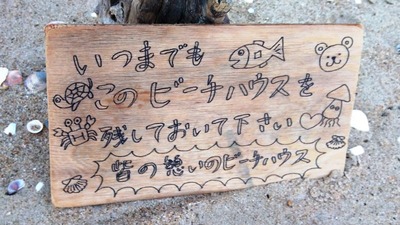 いつまでも
このビーチハウスを
残しておいて下さい
皆の憩いのビーチハウス